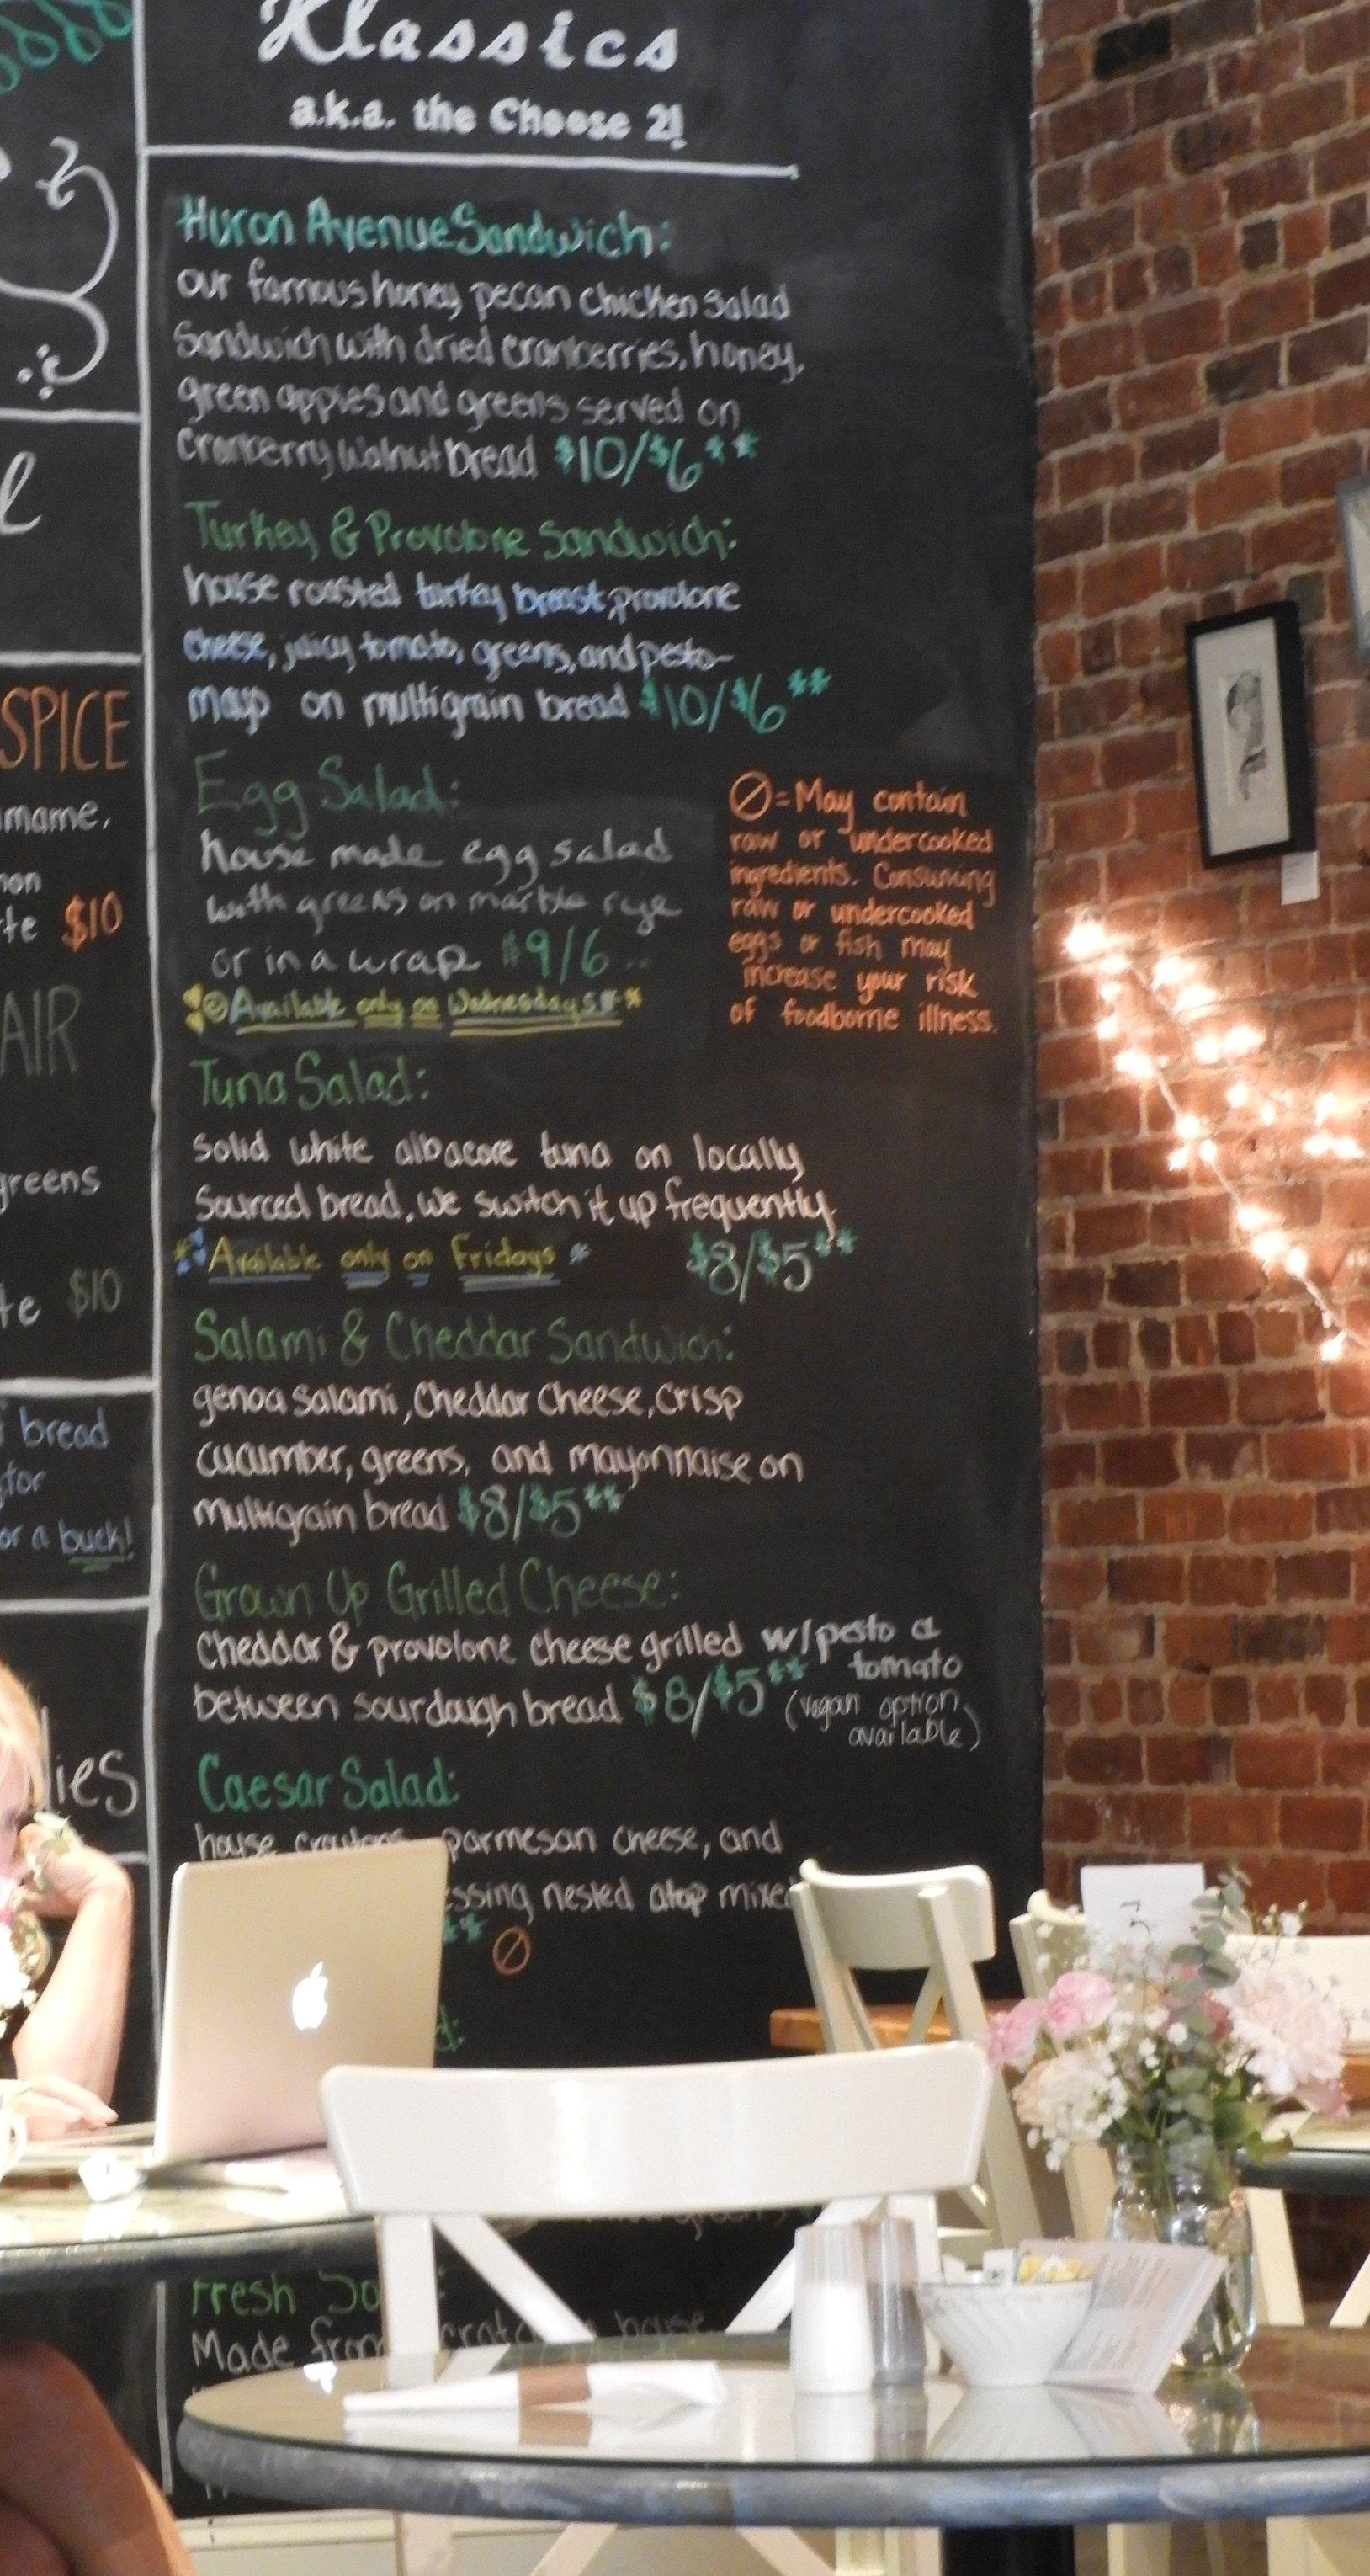 Klassics
a.k.a. the Choose 2!
Huron Avenue Sandwich:
our famous honey pecan chicken salad
Sandwich with dried cranberries, honey,
green apples and greens served on
Cranberry Walnut bread $10/$6**
Turkey & Provolone Sandwich:
house roasted turkey breast, provolone
cheese, juicy tomato, greens, and pesto-
mayo on multigrain bread $10/$6**
Egg Salad:
house made egg salad
with greens on marble rye
or in a wrap $9/6
Available only on Wednesdays**
⊘=May contain
raw or undercooked
ingredients. Consuming
raw or undercooked
eggs or fish may
increase your risk
of foodborne illness.
Tuna Salad:
Solid white albacore tuna on locally
Sourced bread, we switch it up frequently.
*Available only on Fridays* $8/$5**
Salami & Cheddar Sandwich:
genoa salami, Cheddar Cheese, Crisp
cucumber, greens, and mayonnaise on
multigrain bread $8/$5**
Grown Up Grilled Cheese:
Cheddar & provolone cheese grilled w/pesto &
tomato
between sourdough bread $8/$5** (vegan option
available)
Caesar Salad:
house croutons parmesan cheese, and
essing nested atop mixed
** ⊘
d:
Fresh So
Made from house
SPICE
mame,
non
te $10
AIR
greens
te $10
bread
for
or a buck!
lies
3